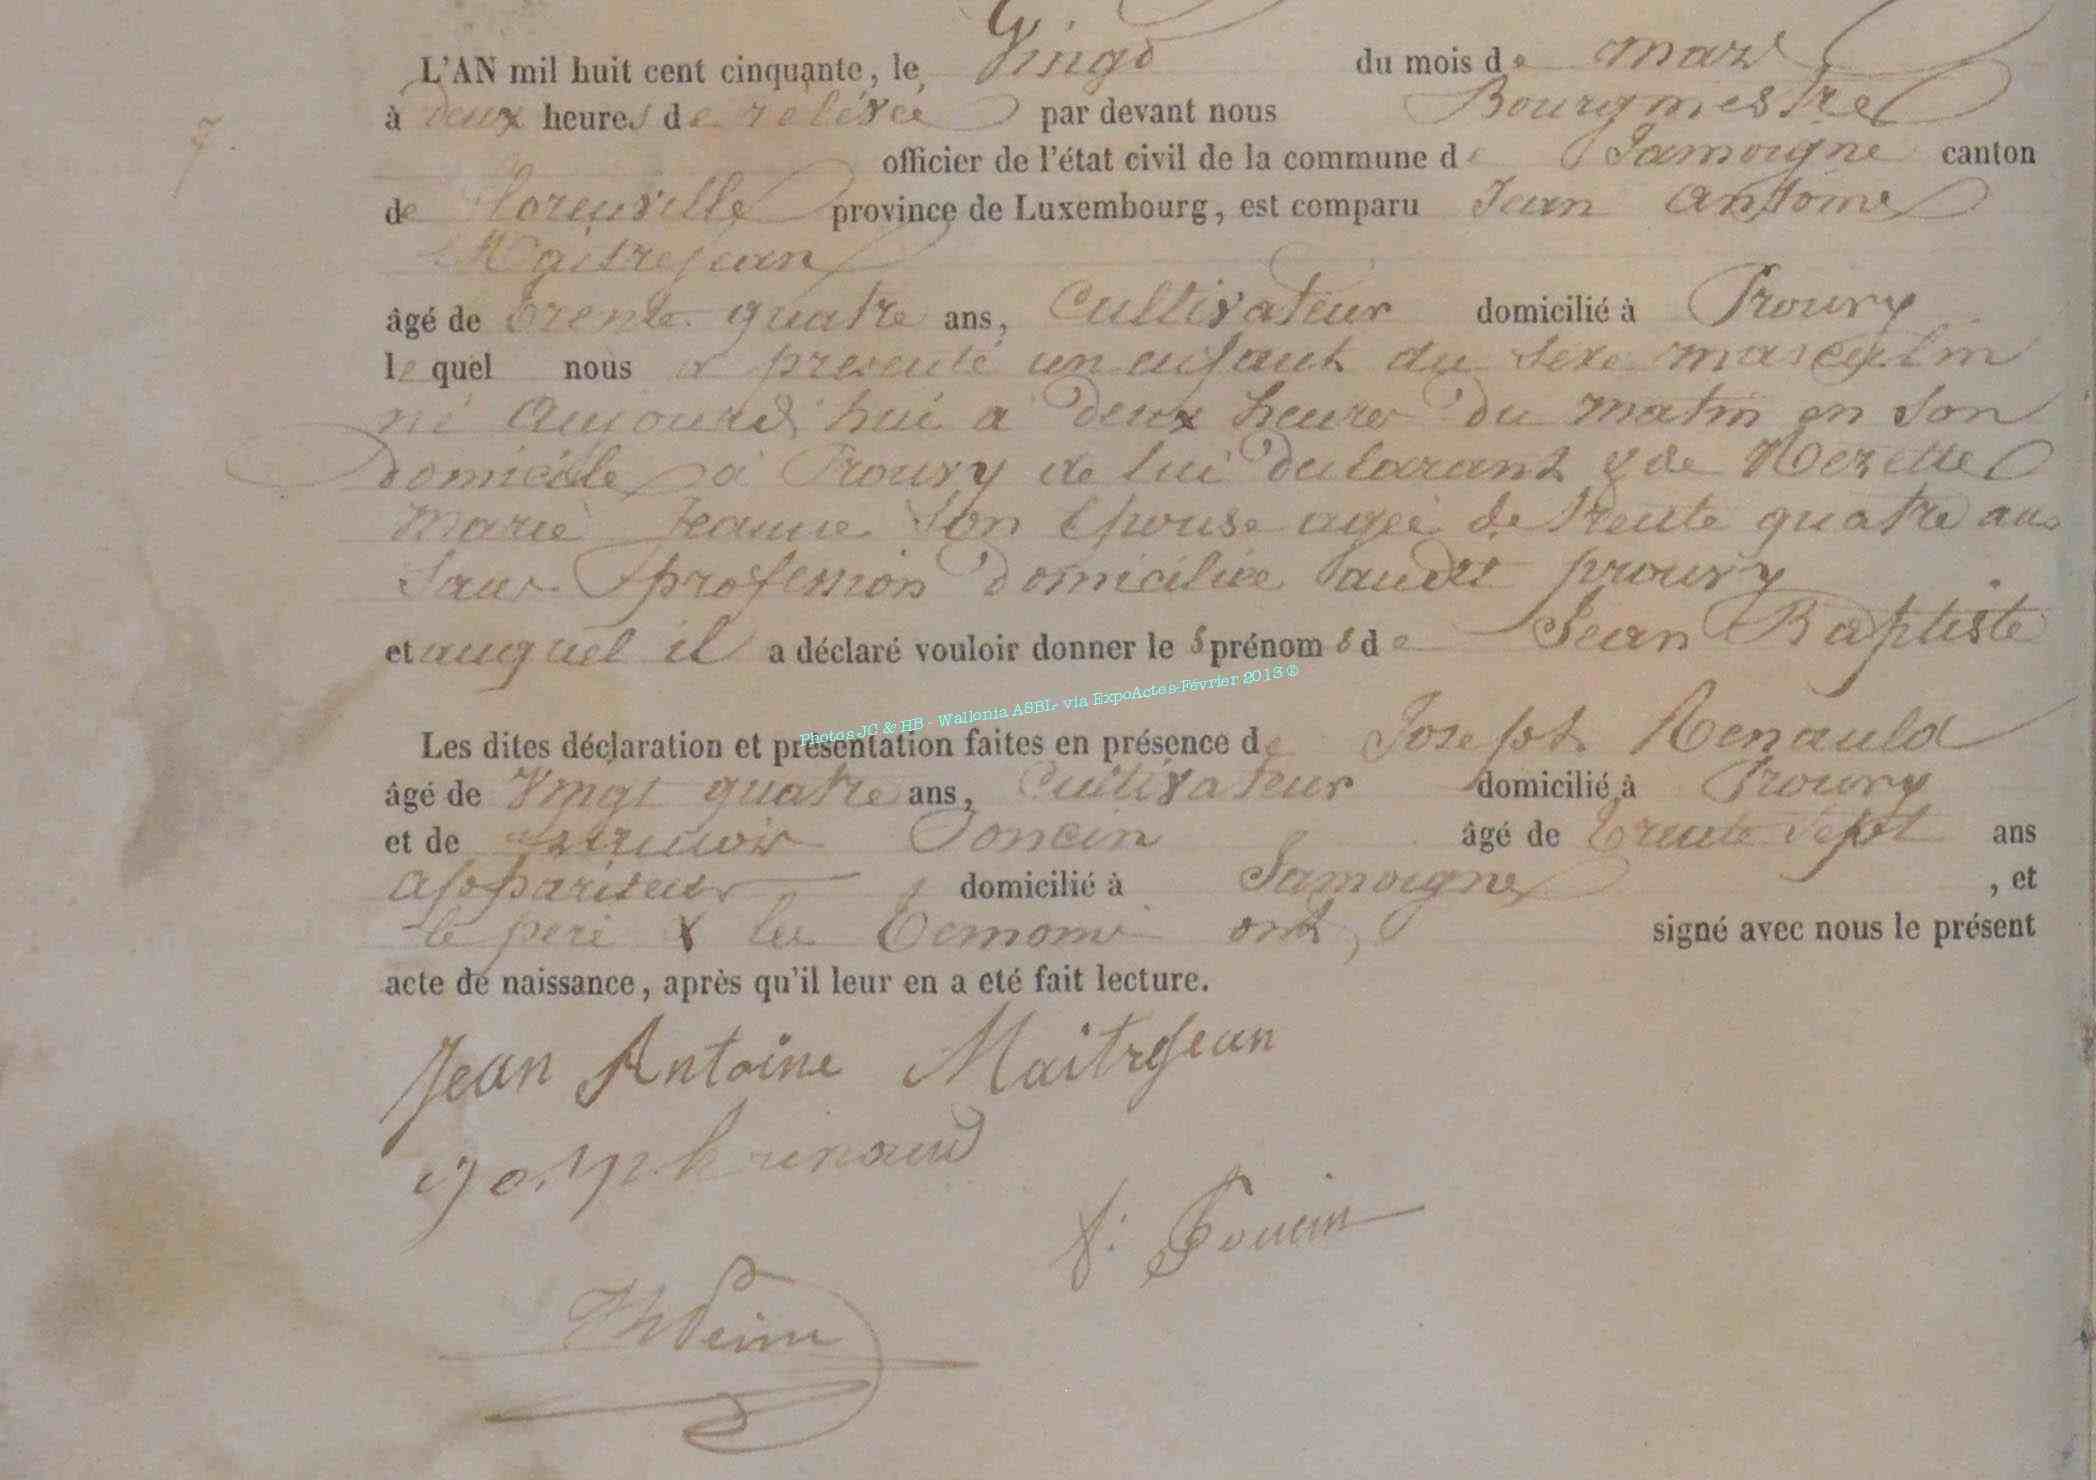 L'AN mil huit cent cinquante, le Vingt du mois de mars
à deux heures de relévée par devant nous Bourgmestre
7.
officier de l'état civil de la commune de Jamoigne canton
de florenville province de Luxembourg, est comparu Jean Antoine
Maitrejean
âgé de trente quatre ans, Cultivateur domicilié à Prouvy
le quel nous a presenté un enfant du sexe masculin
né aujourd'hui a deux heures du matin en son
domicile a Prouvy de lui déclarant & de Nezette
Marie Jeanne son épouse agée de trente quatre ans
sans profession domiciliée audit prouvy
et auquel il a déclaré vouloir donner le s prénom s de Jean Baptiste
Photos JC & HB - Wallonia ASBL via ExpoActes-Février 2013 ©
Les dites déclaration et présentation faites en présence de Joseph Renauld
âgé de Vingt quatre ans, Cultivateur domicilié à Prouvy
et de Poncin âgé de trente sept ans
appariteur domicilié à Jamoigne , et
le pere & les temoins ont signé avec nous le présent
acte de naissance, après qu'il leur en a eté fait lecture.
Jean Antoine Maitrejean
joseph renaud
f: Poncin